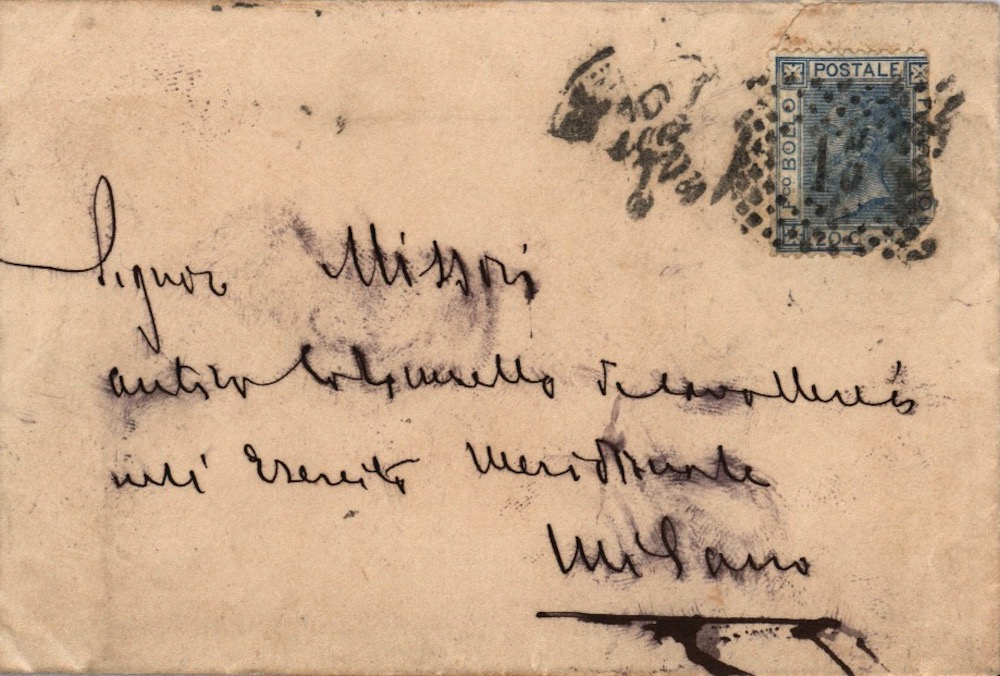 POSTALE
BOLLO
20 C
15
Signor Missori
antico Colonnello di cavalleria
nell' Esercito Meridionale
Milano